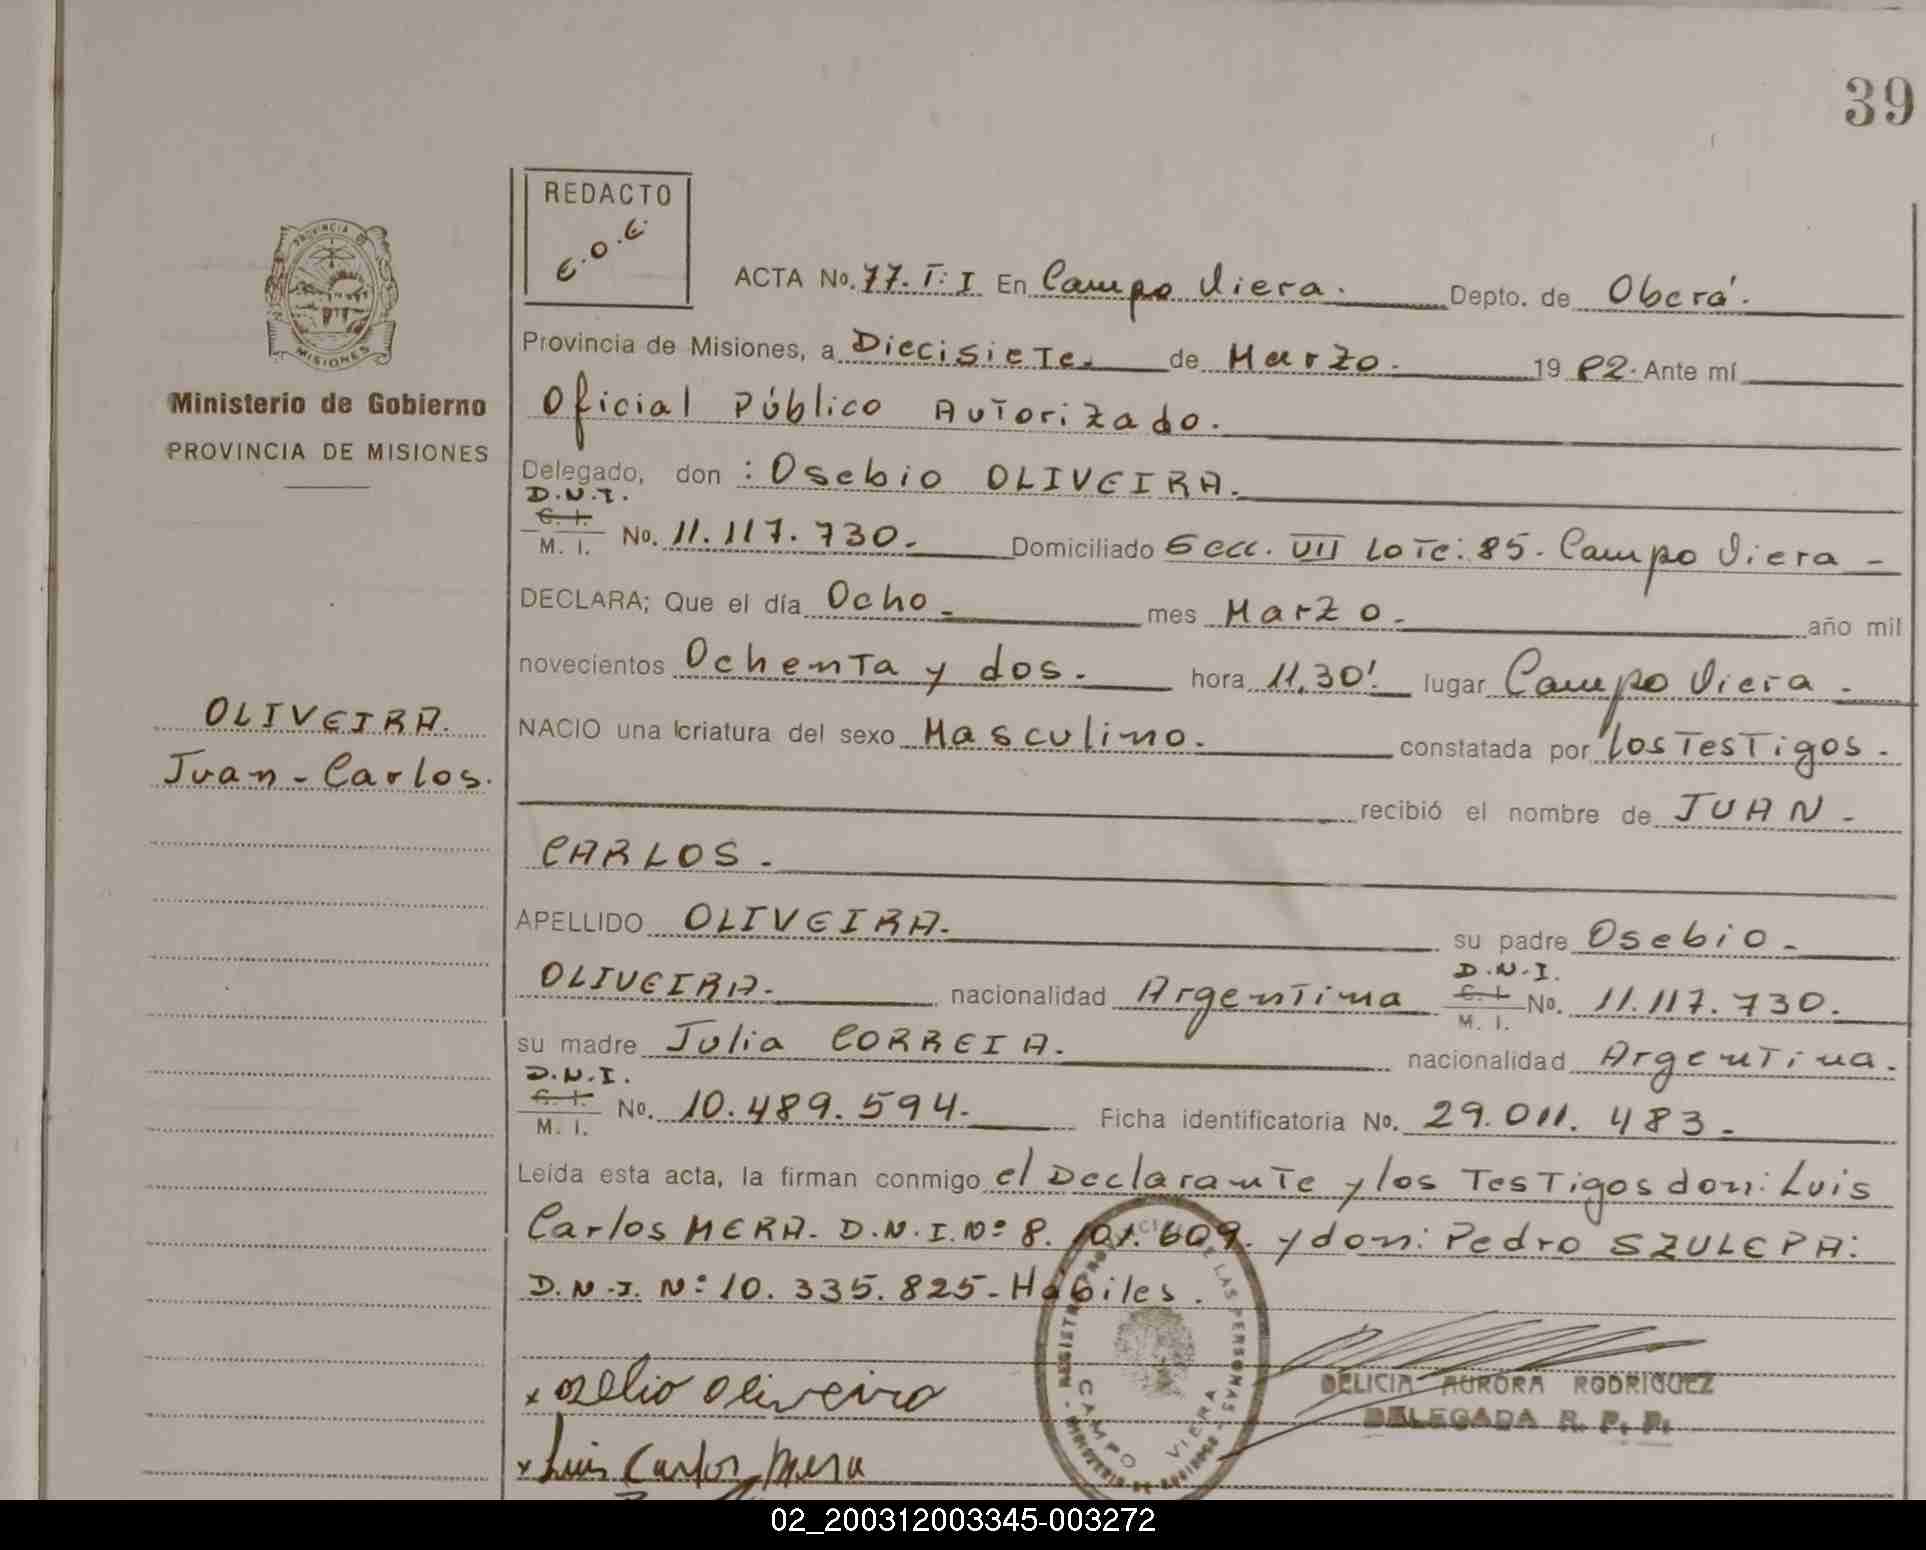 39
REDACTO
E.O.E.
PROVINCIA DE
MISIONES
Ministerio de Gobierno
PROVINCIA DE MISIONES
OLIVEIRA.
Juan - Carlos.
ACTA No. 77. T: I En Campo Viera. Depto. de Oberá.
Provincia de Misiones, a Diecisiete. de Marzo. 19 82. Ante mí
Oficial Público Autorizado.
Delegado, don : Osebio OLIVEIRA.
D.N.I.
C. I.
M. I. No. 11.117.730. Domiciliado Secc. VII Lote: 85. Campo Viera -
DECLARA; Que el día Ocho - mes Marzo. año mil
novecientos Ochenta y dos. hora 11,30'. lugar Campo Viera -
NACIO una criatura del sexo Masculino. constatada por los Testigos.
recibió el nombre de JUAN -
CARLOS.
APELLIDO OLIVEIRA. su padre Osebio -
OLIVEIRA. nacionalidad Argentina D.N.I. C. I. M. I. No. 11.117.730.
su madre Julia CORREIA. nacionalidad Argentina.
D.N.I.
C. I.
M. I. No. 10.489.594. Ficha identificatoria No. 29.011.483.
Leída esta acta, la firman conmigo el Declarante y los Testigos don: Luis
Carlos MERA. D.N.I. Nº 8.101.609. y don: Pedro SZULEPA:
D.N.I. Nº: 10.335.825 - Habiles.
x Oliveira
x Luis Carlos Mera
LAS PERSONAS
CAMPO VIERA
DELICIA AURORA RODRIGUEZ
DELEGADA R. P. P.
02_200312003345-003272